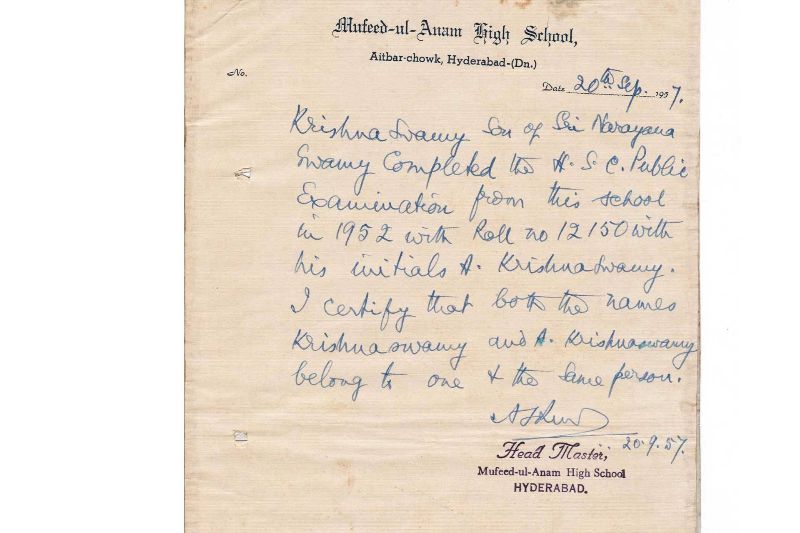 Mufeed-ul-Anam High School,
Aitbar-chowk, Hyderabad-(Dn.)
No.
Date 20th Sep. 1957.
Krishna Swamy Son of Sri Narayana
Swamy Completed the H. S. C. Public
Examination from this school
in 1952 with Roll no 12150 with
his initials A. Krishna Swamy.
I certify that both the names
Krishnaswamy and A. Krishnaswamy
belong to one & the same person.
20.9.57.
Head Master,
Mufeed-ul-Anam High School
HYDERABAD.